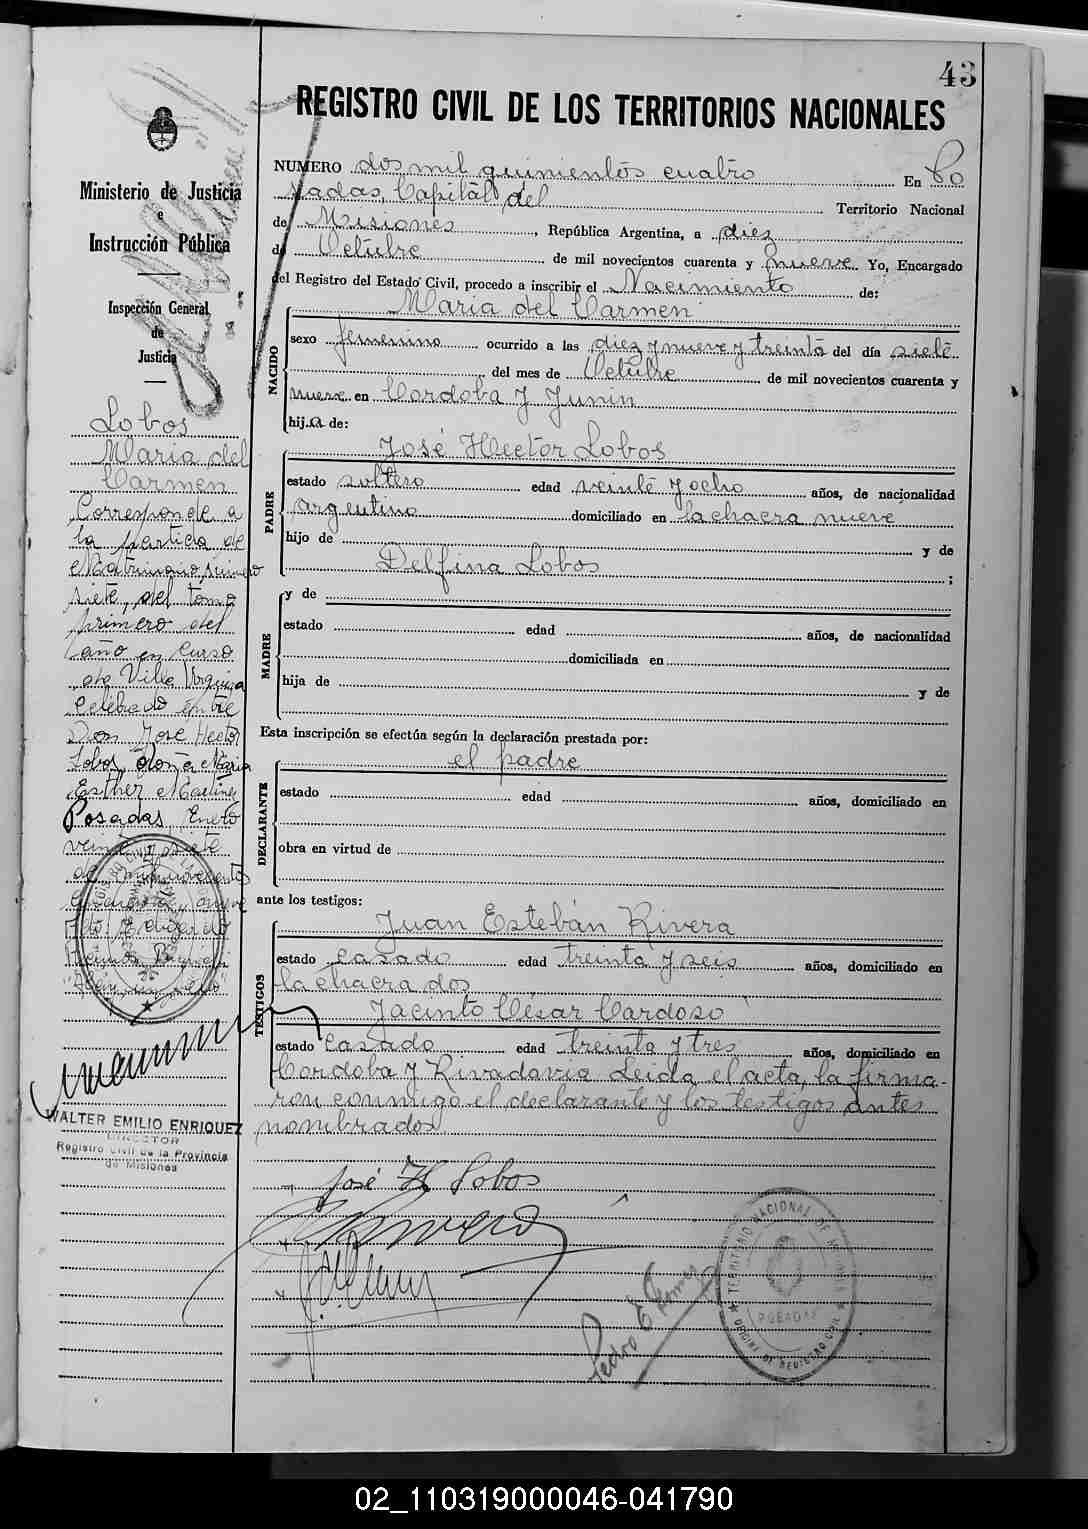 43
REGISTRO CIVIL DE LOS TERRITORIOS NACIONALES
Ministerio de Justicia
e
Instrucción Pública
Inspección General
de
Justicia
Lobos
Maria del
Carmen
Corresponde a
la partida de
Matrimonio número
siete, del tomo
primero del
año en curso
de Villa
celebrado entre
Don Jose Hector
Lobos, doña Maria
Esther
Posadas, Enero
WALTER EMILIO ENRIQUEZ
DIRECTOR
Registro Civil de la Provincia
de Misiones
NUMERO dos mil quinientos cuatro En Po
sadas, Capital del Territorio Nacional
de Misiones, República Argentina, a diez
de Octubre de mil novecientos cuarenta y nueve. Yo, Encargado
del Registro del Estado Civil, procedo a inscribir el Nacimiento de:
NACIDO
Maria del Carmen
sexo femenino ocurrido a las diez y nueve y treinta del día siete
del mes de Octubre de mil novecientos cuarenta y
nueve en Cordoba y Junin
hija de:
PADRE
José Hector Lobos
estado soltero edad veinte y ocho años, de nacionalidad
argentino domiciliado en la chacra nueve
hijo de y de
Delfina Lobos ;
MADRE
y de
estado edad años, de nacionalidad
domiciliada en
hija de y de
Esta inscripción se efectúa según la declaración prestada por:
DECLARANTE
el padre
estado edad años, domiciliado en
obra en virtud de
ante los testigos:
TESTIGOS
Juan Estebán Rivera
estado casado edad treinta y seis años, domiciliado en
la chacra dos
Jacinto César Cardoso
estado casado edad treinta y tres años, domiciliado en
Cordoba y Rivadavia Leida el acta, la firma-
ron conmigo el declarante y los testigos antes
nombrados
José H. Lobos
Pedro Gomez
TERRITORIO NACIONAL DE MISIONES
POSADAS
OFICINA DE REGISTRO CIVIL
02_110319000046-041790